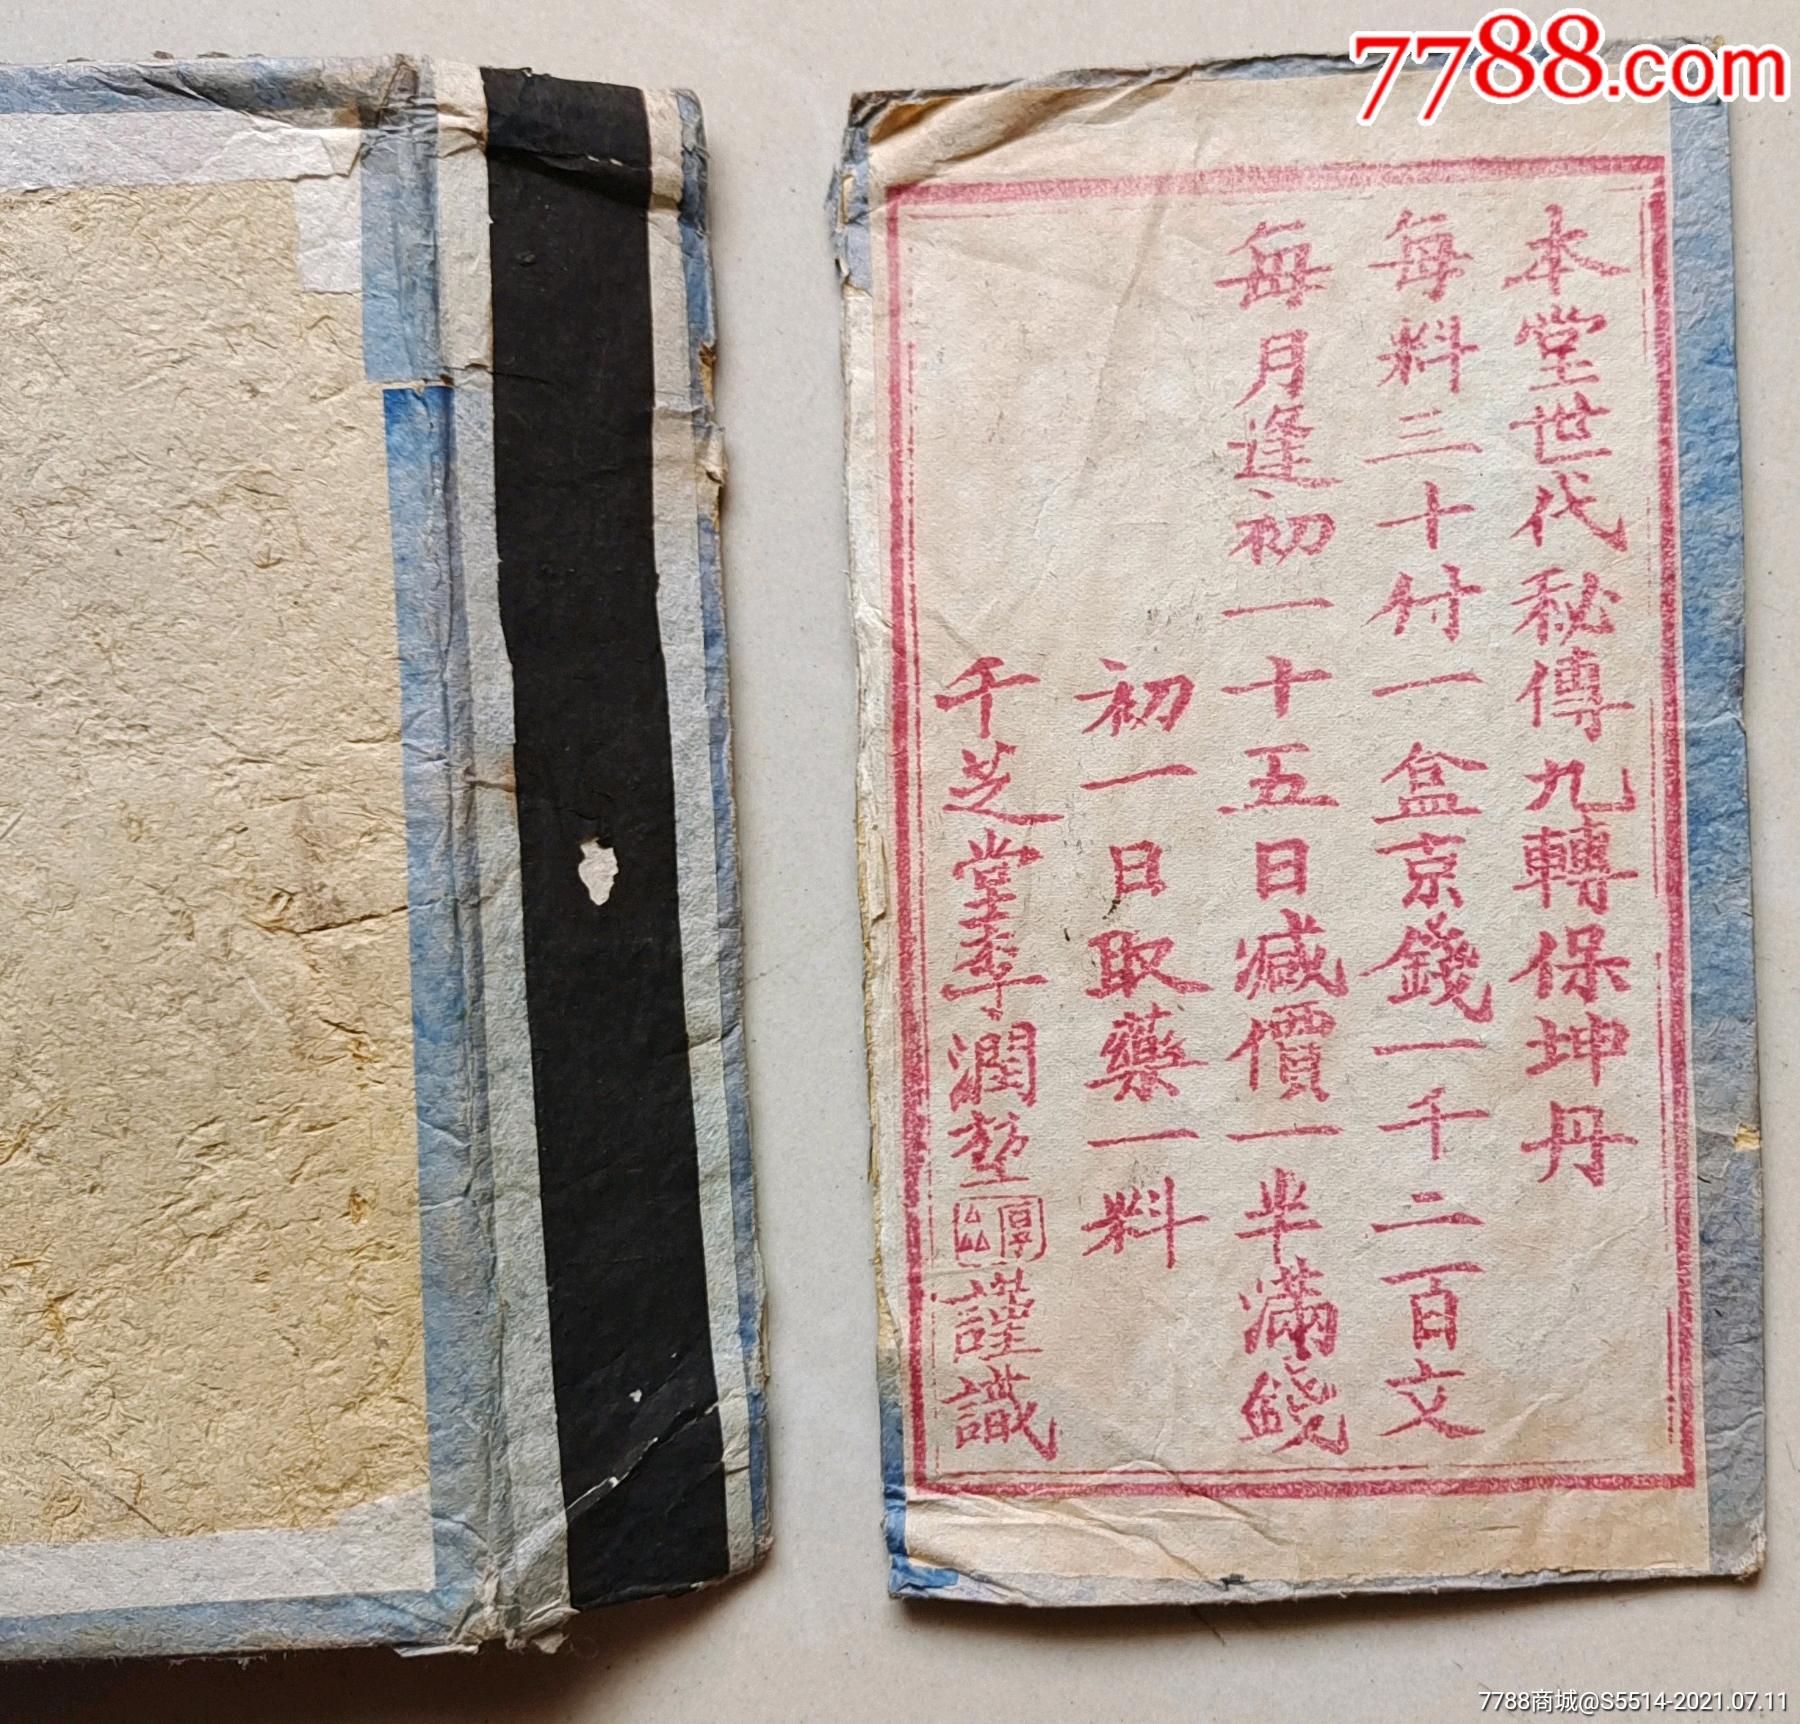 7788.com
本堂世代秘傳九轉保坤丹
每料三十付一盒京錢一千二百文
每月逢初一十五日减價一半滿錢
初一日取藥一料
千芝堂李潤堃謹識
7788商城@S5514-2021.07.11